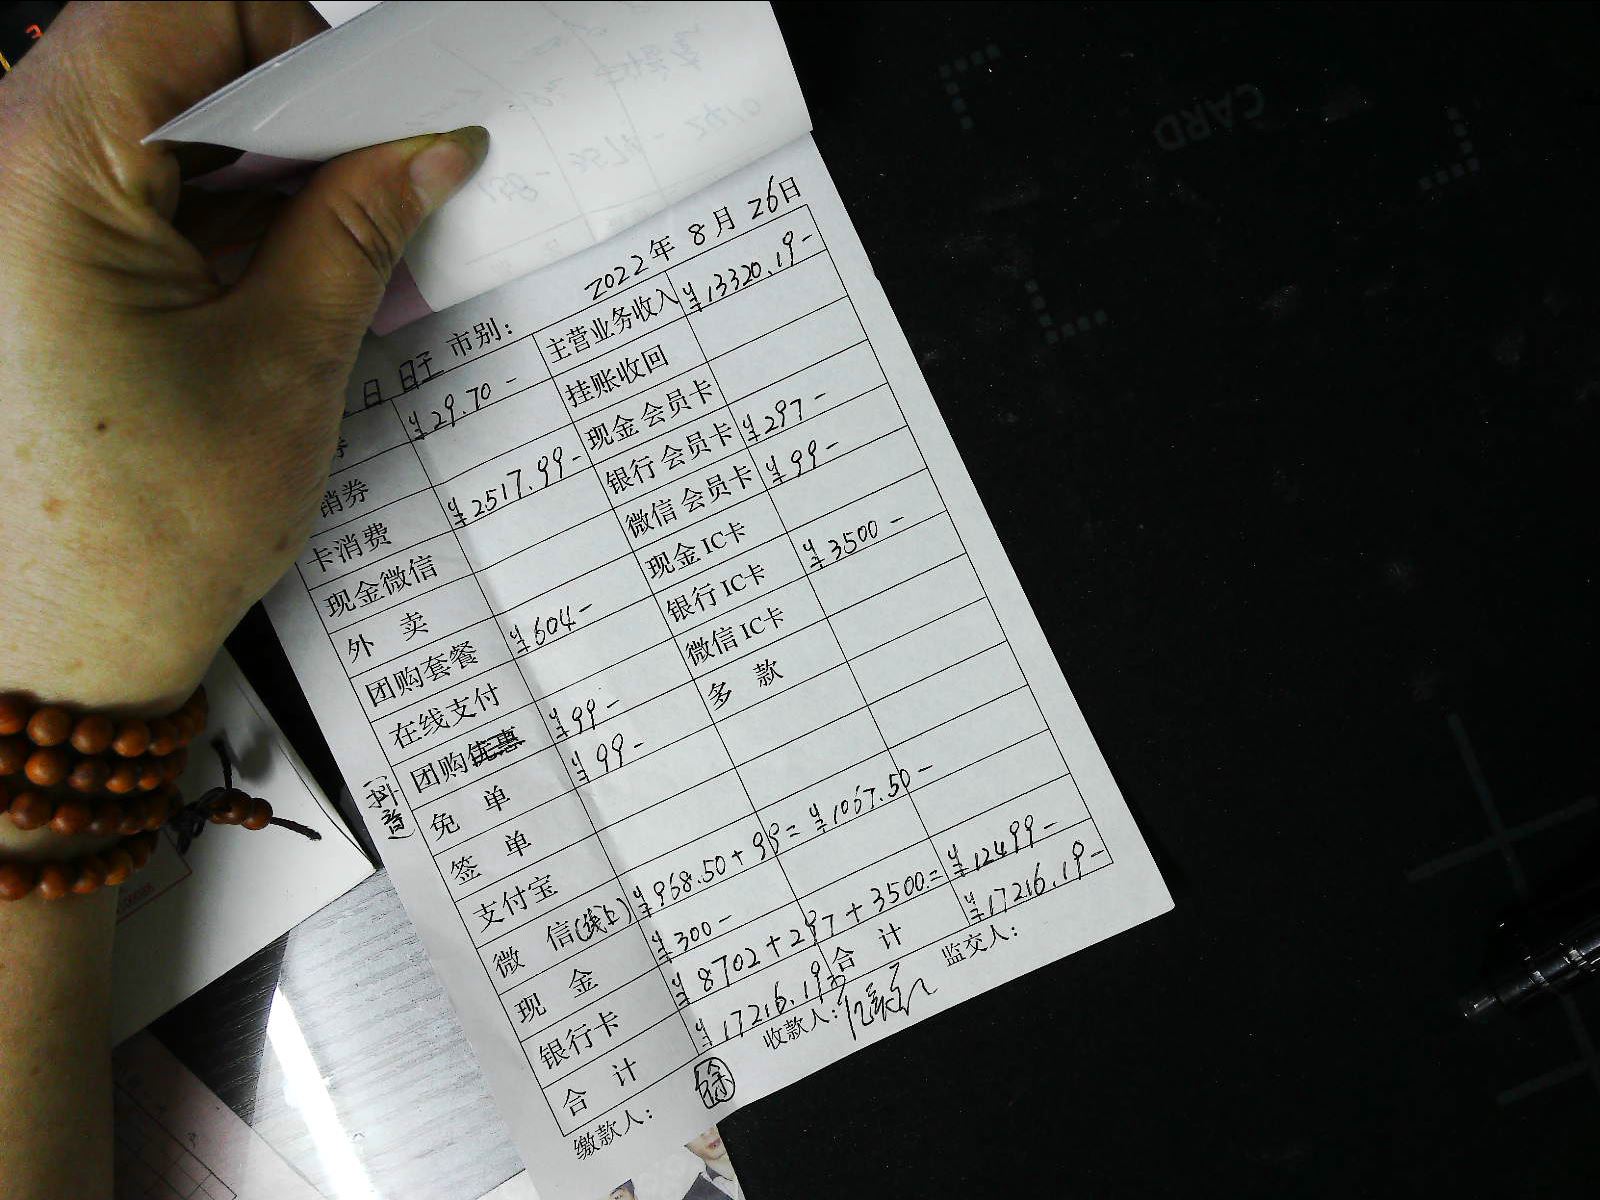 2022年 8月 26日
日 日干 市别:
券 ¥29.70- 主营业务收入 ¥13320.19-
销券 挂账收回
卡消费 ¥2517.99- 现金会员卡
现金微信 银行会员卡 ¥297-
外卖 微信会员卡 ¥99-
团购套餐 ¥604- 现金IC卡
在线支付 银行IC卡 ¥3500-
团购优惠 ¥99- 微信IC卡
(抖音)
免单 ¥99- 多款
签单
支付宝
微信(线上) ¥968.50+99=¥1067.50-
现金 ¥300-
银行卡 ¥8702+297+3500.=¥12499-
合计 ¥17216.19- 合计 ¥17216.19-
缴款人: 徐 收款人: 监交人:
CARD